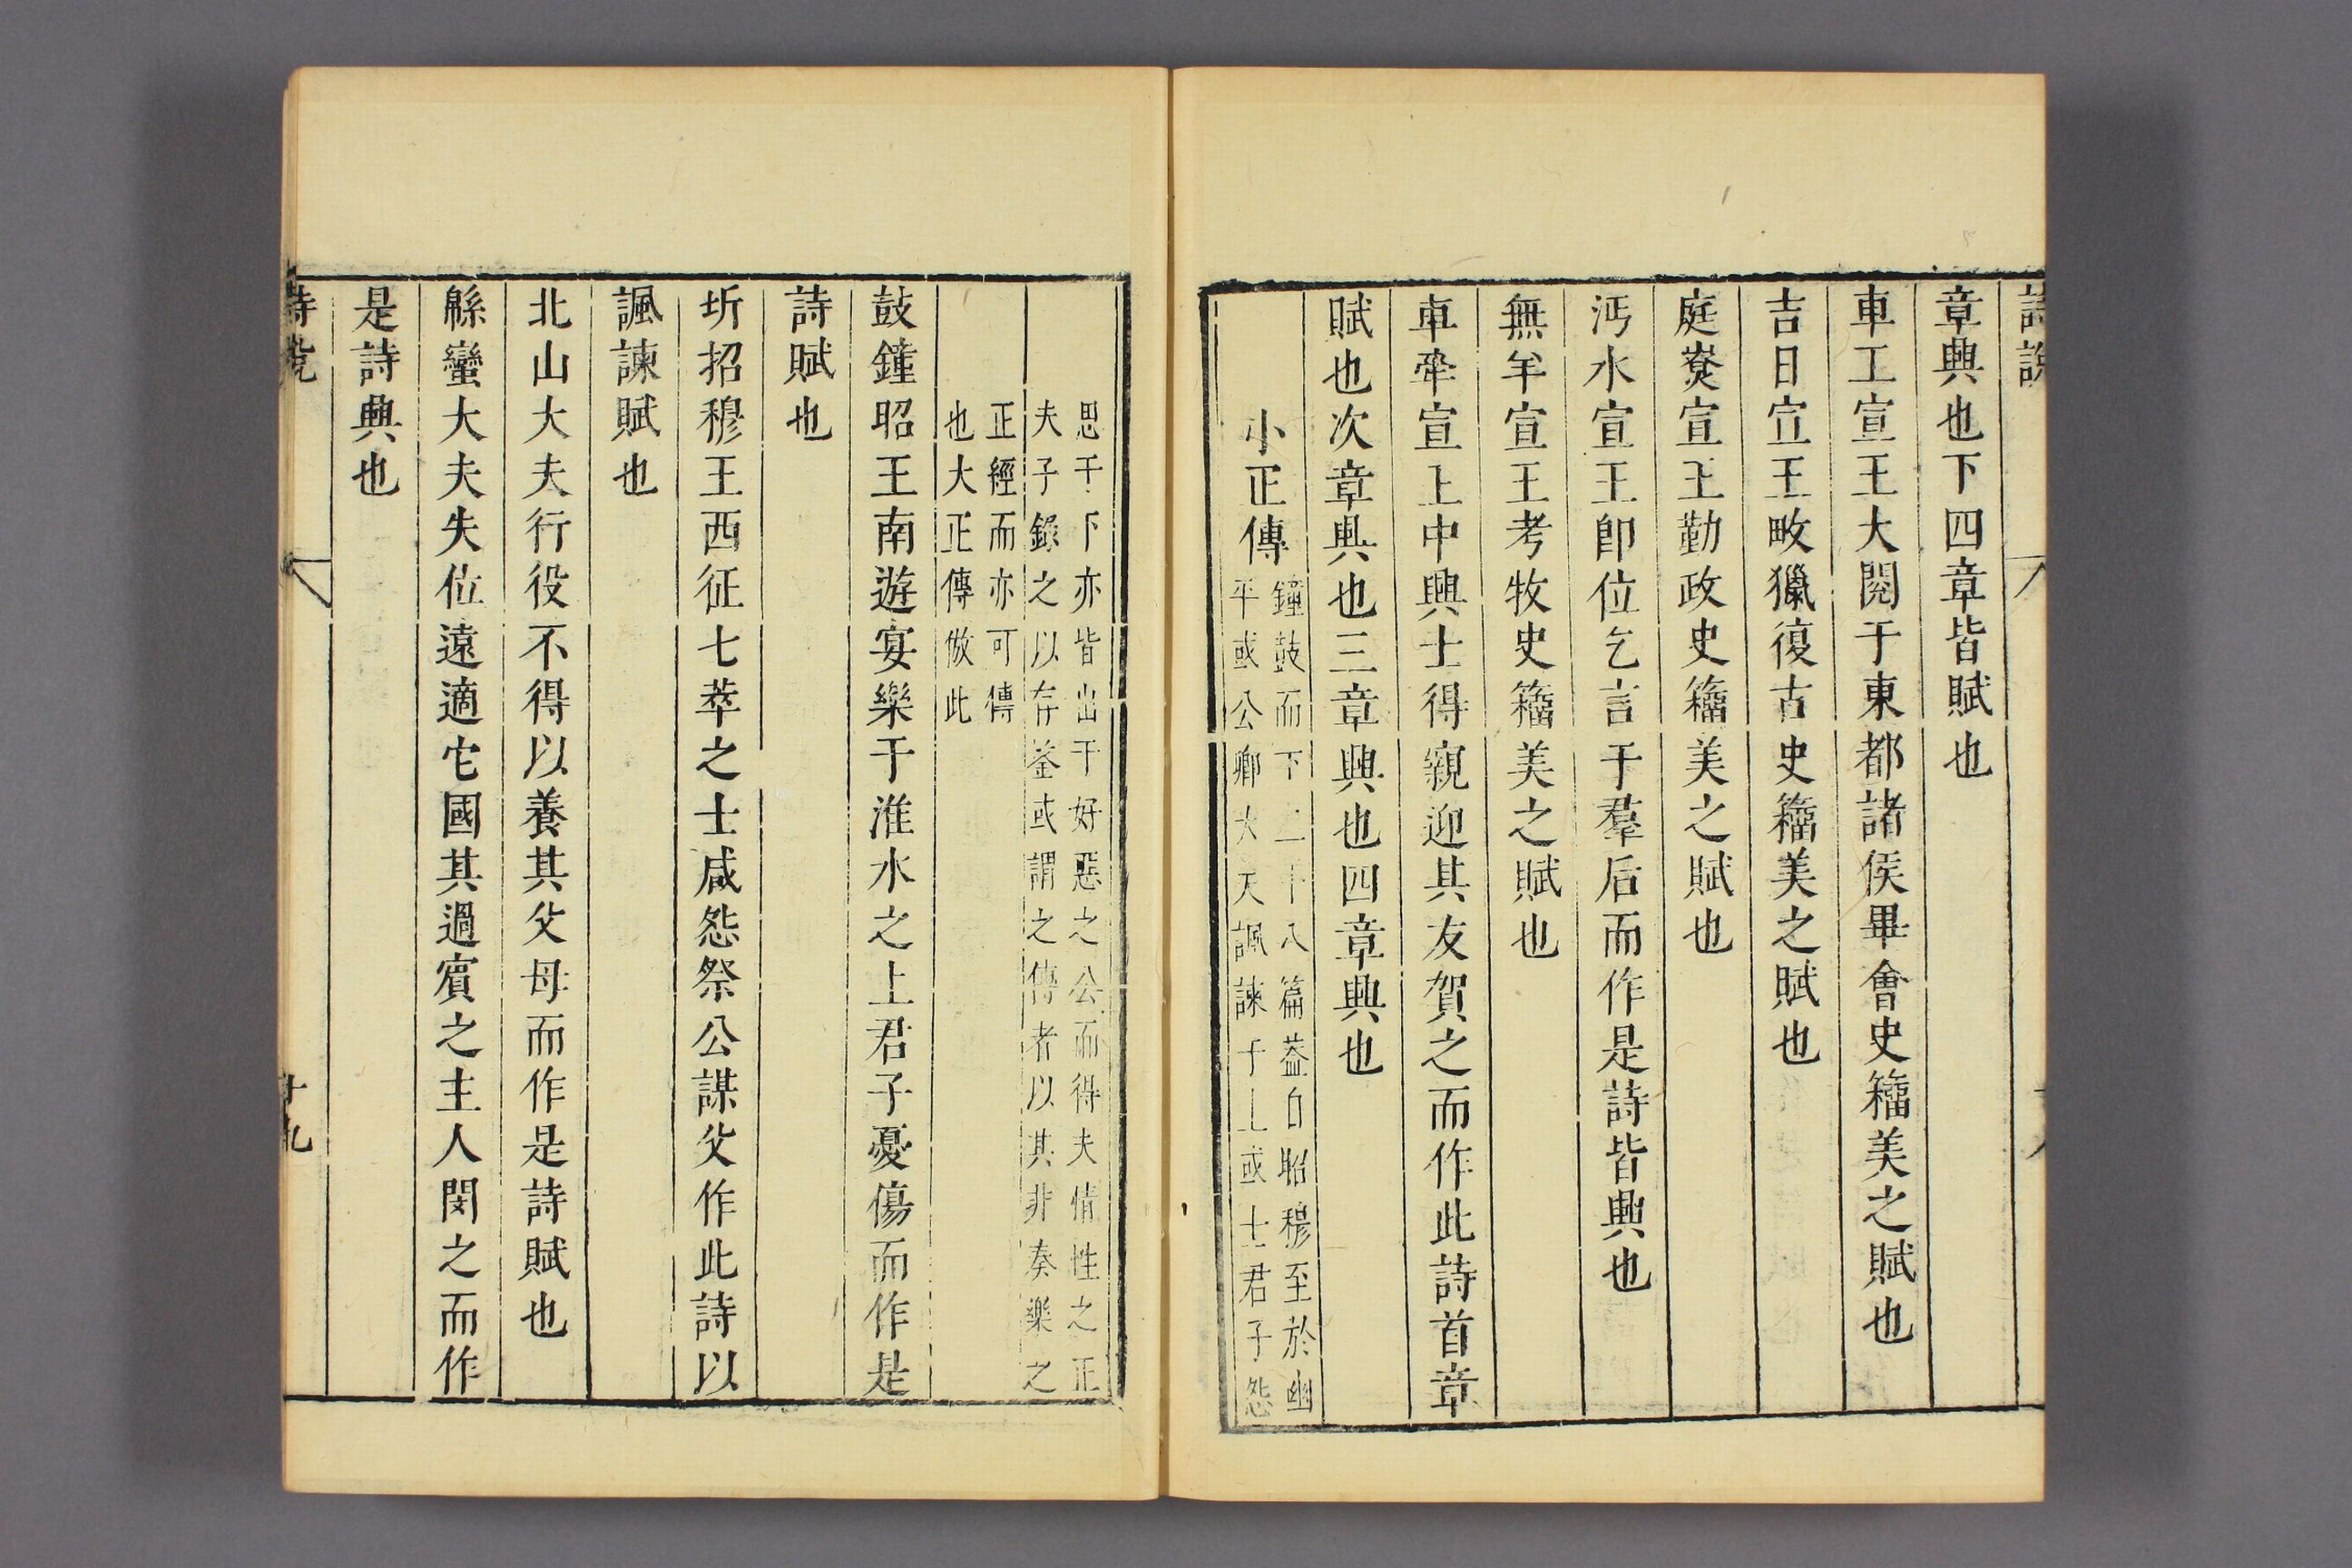 詩說
章興也下四章皆賦也
車工宣王大閱于東都諸侯畢會史籀美之賦也
吉日宣王畋獵復古史籀美之賦也
庭燎宣王勤政史籀美之賦也
沔水宣王卽位乞言于羣后而作是詩皆興也
無羊宣王考牧史籀美之賦也
車舝宣王中興士得親迎其友賀之而作此詩首章
賦也次章興也三章興也四章興也
小正傳
鐘鼓而下二十八篇葢自昭穆至於幽
平或公卿大夫諷諫于上或士君子怨
思于下亦皆出于好惡之公而得夫情性之正
夫子錄之以存鉴或謂之傳者以其非奏樂之
正經而亦可傳
也大正傳倣此
鼓鐘昭王南遊宴樂于淮水之上君子憂傷而作是
詩賦也
圻招穆王西征七萃之士咸怨祭公謀父作此詩以
諷諫賦也
北山大夫行役不得以養其父母而作是詩賦也
緜蠻大夫失位遠適它國其過賓之主人閔之而作
是詩興也
詩說
十九